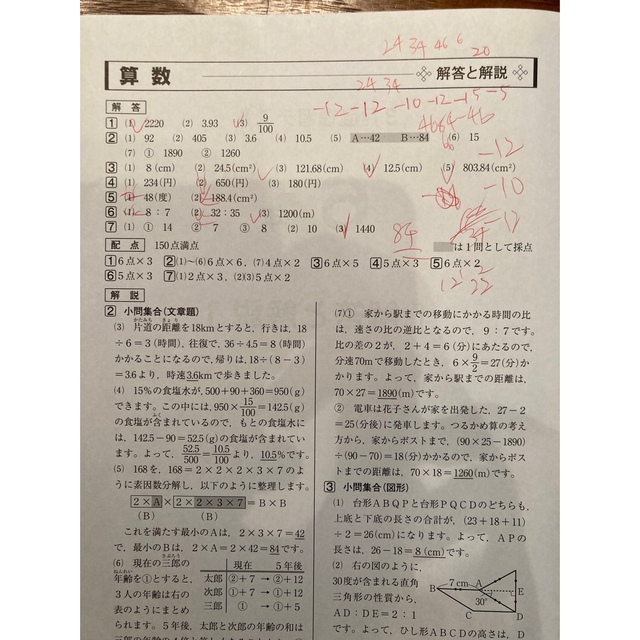 24 34 46 6
20
算数
解答と解説
24 34
-12-12 -10 -12 -15 -5
解答
1 (1) 2220 (2) 3.93 (3) 9/100
4664-46
2 (1) 92 (2) 405 (3) 3.6 (4) 10.5 (5) A…42 B…84 (6) 15
(7) ① 1890 ② 1260
-12
3 (1) 8(cm) (2) 24.5(cm²) (3) 121.68(cm) (4) 12.5(cm) (5) 803.84(cm²)
4 (1) 234(円) (2) 650(円) (3) 180(円)
-10
5 (1) 48(度) (2) 188.4(cm²)
6 (1) 8：7 (2) 32：35 (3) 1200(m)
7 (1) ① 14 ② 7 ③ 8 (2) 10 (3) 1440
84
配点 150点満点
は1問として採点
1 6点×3 2 (1)～(6)6点×6, (7)4点×2 3 6点×5 4 5点×3 5 6点×2
6 5点×3 7 (1)2点×3, (2)(3)5点×2
解説
2 小問集合(文章題)
(3) 片道の距離を18kmとすると，行きは，18
÷6＝3(時間)，往復で，36÷4.5＝8(時間)
かかることになるので，帰りは，18÷(8－3)
＝3.6より，時速3.6kmで歩きました。
(4) 15％の食塩水が，500＋90＋360＝950(g)
できます。この中には，950×15/100＝142.5(g)
の食塩が含まれているので，もとの食塩水に
は，142.5－90＝52.5(g)の食塩が含まれてい
ます。よって，52.5/500＝10.5/100より，10.5％です。
(5) 168を，168＝2×2×2×3×7のよ
うに素因数分解し，以下のように整理します。
2×A×2×2×3×7＝B×B
(B) (B)
これを満たす最小のAは，2×3×7＝42
で，最小のBは，2×A＝2×42＝84です。
(6) 現在の三郎の
年齢を①とすると，
3人の年齢は右の
表のようにまとめ
られます。5年後，太郎と次郎の年齢の和は
現在 5年後
太郎 ②＋7 → ②＋12
次郎 ①＋7 → ①＋12
三郎 ① → ①＋5
(7)① 家から駅までの移動にかかる時間の比
は，速さの比の逆比となるので，9：7です。
比の差の2が，2＋4＝6(分)にあたるので，
分速70mで移動したとき，6×9/2＝27(分)か
かります。よって，家から駅までの距離は，
70×27＝1890(m)です。
② 電車は花子さんが家を出発した，27－2
＝25(分後)に発車します。つるかめ算の考え
方から，家からポストまで，(90×25－1890)
÷(90－70)＝18(分)かかるので，家からポス
トまでの距離は，70×18＝1260(m)です。
3 小問集合(図形)
(1) 台形ABQPと台形PQCDのどちらも，
上底と下底の長さの合計が，(23＋18＋11)
÷2＝26(cm)になります。よって，APの
長さは，26－18＝8(cm)です。
(2) 右の図のように，
30度が含まれる直角
三角形の性質から，
AD：DE＝2：1
です。よって，ひし形ABCDの高さは，D
B 7cm A E
30°
C D